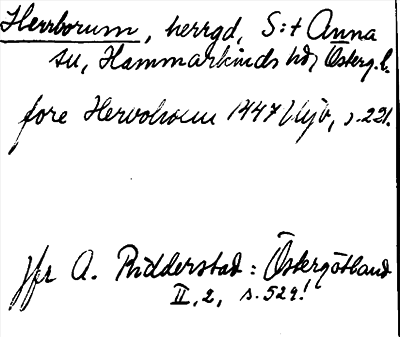 Herrborum, herrgd, S:t Anna
sn, Hammarkinds hd, Österg.l.
före Hervohorn 1447 Ujb, s. 221.
Jfr A. Ridderstad: Östergötland
II, 2, s. 529!